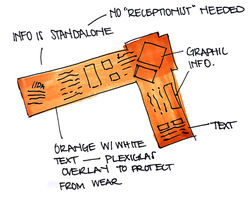 NO "RECEPTIONIST" NEEDED
INFO IS STANDALONE
GRAPHIC
INFO.
IIDA
TEXT
ORANGE W/WHITE
TEXT — PLEXIGLAS
OVERLAY TO PROTECT
FROM WEAR